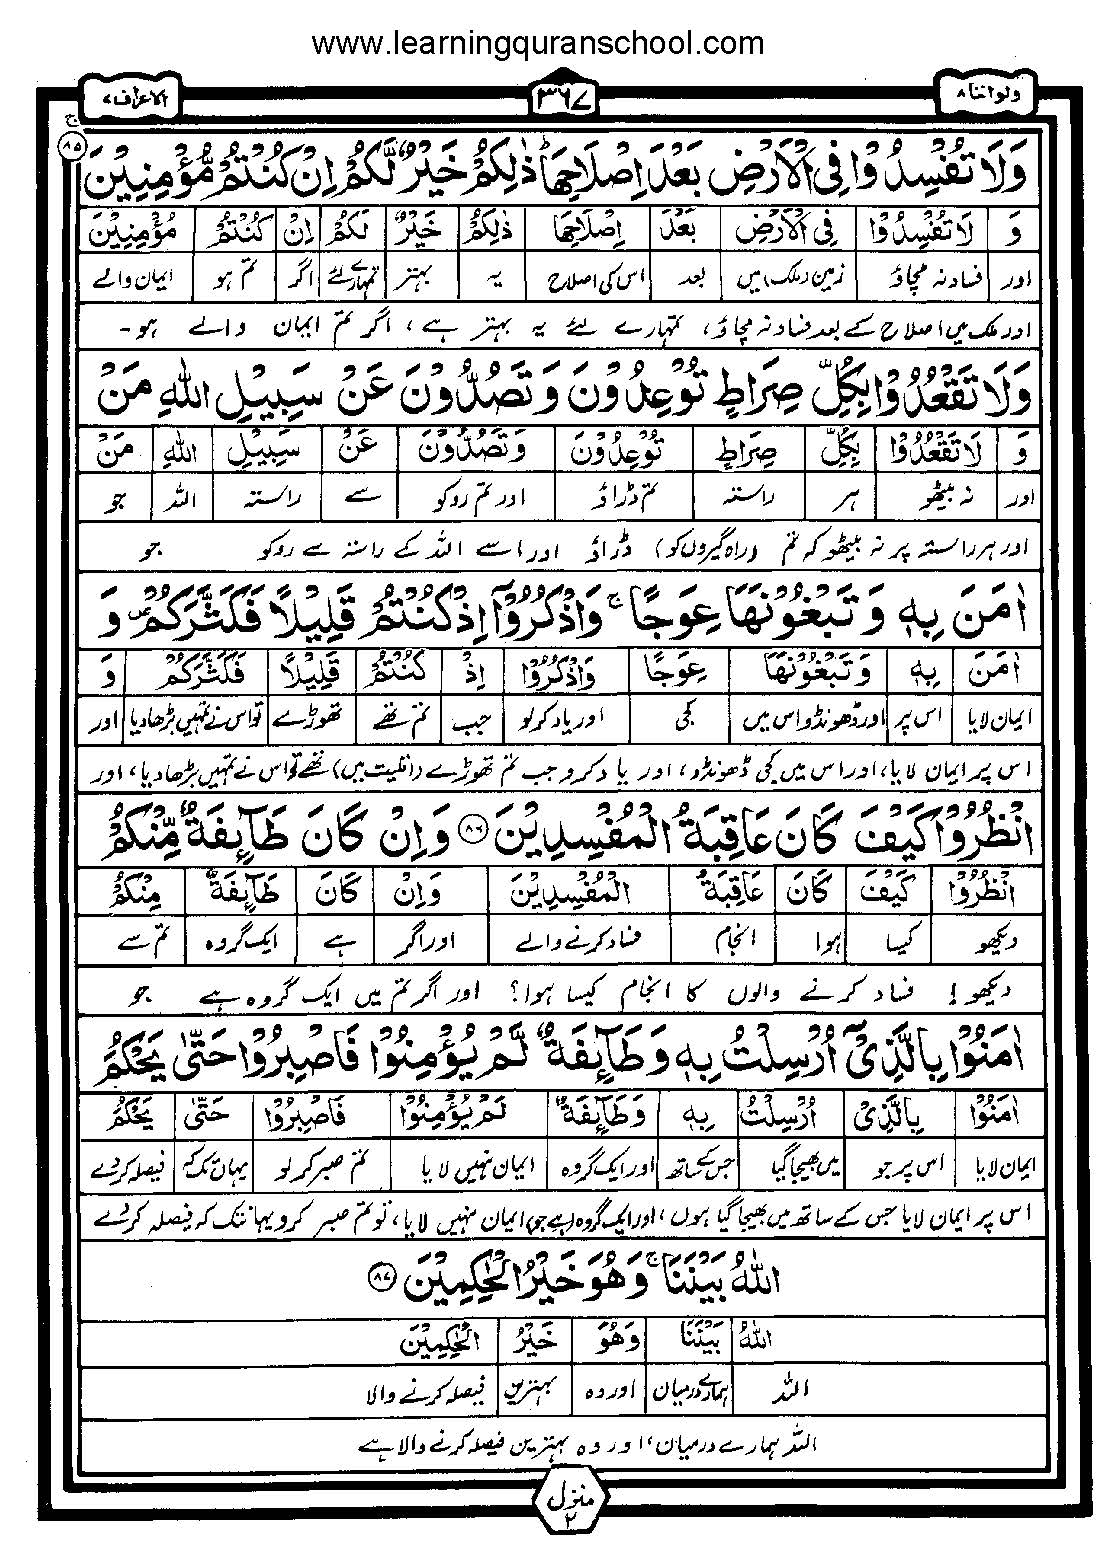 www.learningquranschool.com
ولواننا ۸ ۳۶۷ الاعراف ۷
وَلَا تُفْسِدُوْا فِی الْاَرْضِ بَعْدَ اِصْلَاحِهَا ؕ ذٰلِكُمْ خَیْرٌ لَّكُمْ اِنْ كُنْتُمْ مُّؤْمِنِیْنَ ۸۵
وَ لَا تُفْسِدُوْا فِی الْاَرْضِ بَعْدَ اِصْلَاحِهَا ذٰلِكُمْ خَیْرٌ لَكُمْ اِنْ كُنْتُمْ مُؤْمِنِیْنَ
اور فساد نہ مچاؤ زمین (ملک) میں بعد اس کی اصلاح یہ بہتر تمہارے لئے اگر تم ہو ایمان والے
اور ملک میں اصلاح کے بعد فساد نہ مچاؤ، تمہارے لئے یہ بہتر ہے، اگر تم ایمان والے ہو۔
وَلَا تَقْعُدُوْا بِكُلِّ صِرَاطٍ تُوْعِدُوْنَ وَ تَصُدُّوْنَ عَنْ سَبِیْلِ اللّٰهِ مَنْ
وَ لَا تَقْعُدُوْا بِكُلِّ صِرَاطٍ تُوْعِدُوْنَ وَ تَصُدُّوْنَ عَنْ سَبِیْلِ اللّٰهِ مَنْ
اور نہ بیٹھو ہر راستہ تم ڈراؤ اور تم روکو سے راستہ اللہ جو
اور ہر راستہ پر نہ بیٹھو کہ تم (راہ گیروں کو) ڈراؤ اور اسے اللہ کے راستہ سے روکو جو
اٰمَنَ بِهٖ وَ تَبْغُوْنَهَا عِوَجًا ۚ وَاذْكُرُوْۤا اِذْ كُنْتُمْ قَلِیْلًا فَكَثَّرَكُمْ ۪ وَ
اٰمَنَ بِهٖ وَ تَبْغُوْنَهَا عِوَجًا وَاذْكُرُوْا اِذْ كُنْتُمْ قَلِیْلًا فَكَثَّرَكُمْ وَ
ایمان لایا اس پر اور ڈھونڈو اس میں کجی اور یاد کرلو جب تم تھے تھوڑے تو اس نے تمہیں بڑھادیا اور
اس پر ایمان لایا، اور اس میں کجی ڈھونڈو، اور یاد کرو جب تم تھوڑے (اقلیت میں) تھے تو اس نے تمہیں بڑھادیا، اور
انْظُرُوْا كَیْفَ كَانَ عَاقِبَةُ الْمُفْسِدِیْنَ ۸۶ وَاِنْ كَانَ طَآىِٕفَةٌ مِّنْكُمْ
انْظُرُوْا كَیْفَ كَانَ عَاقِبَةُ الْمُفْسِدِیْنَ وَاِنْ كَانَ طَآىِٕفَةٌ مِنْكُمْ
دیکھو کیسا ہوا انجام فساد کرنے والے اور اگر ہے ایک گروہ تم سے
دیکھو! فساد کرنے والوں کا انجام کیسا ہوا؟ اور اگر تم میں ایک گروہ ہے جو
اٰمَنُوْا بِالَّذِیْۤ اُرْسِلْتُ بِهٖ وَ طَآىِٕفَةٌ لَّمْ یُؤْمِنُوْا فَاصْبِرُوْا حَتّٰی یَحْكُمَ
اٰمَنُوْا بِالَّذِیْ اُرْسِلْتُ بِهٖ وَطَآىِٕفَةٌ لَمْ یُؤْمِنُوْا فَاصْبِرُوْا حَتّٰی یَحْكُمَ
ایمان لایا اس پر جو میں بھیجا گیا جس کے ساتھ اور ایک گروہ ایمان نہیں لایا تم صبر کرلو یہاں تک کہ فیصلہ کردے
اس پر ایمان لایا جس کے ساتھ میں بھیجا گیا ہوں، اور ایک گروہ (ہے جو) ایمان نہیں لایا، تو تم صبر کرو یہانتک کہ فیصلہ کردے
اللّٰهُ بَیْنَنَا ۚ وَهُوَ خَیْرُ الْحٰكِمِیْنَ ۸۷
اللّٰهُ بَیْنَنَا وَهُوَ خَیْرُ الْحٰكِمِیْنَ
اللہ ہمارے درمیان اور وہ بہترین فیصلہ کرنے والا
اللہ ہمارے درمیان، اور وہ بہترین فیصلہ کرنے والا ہے
منزل ۲